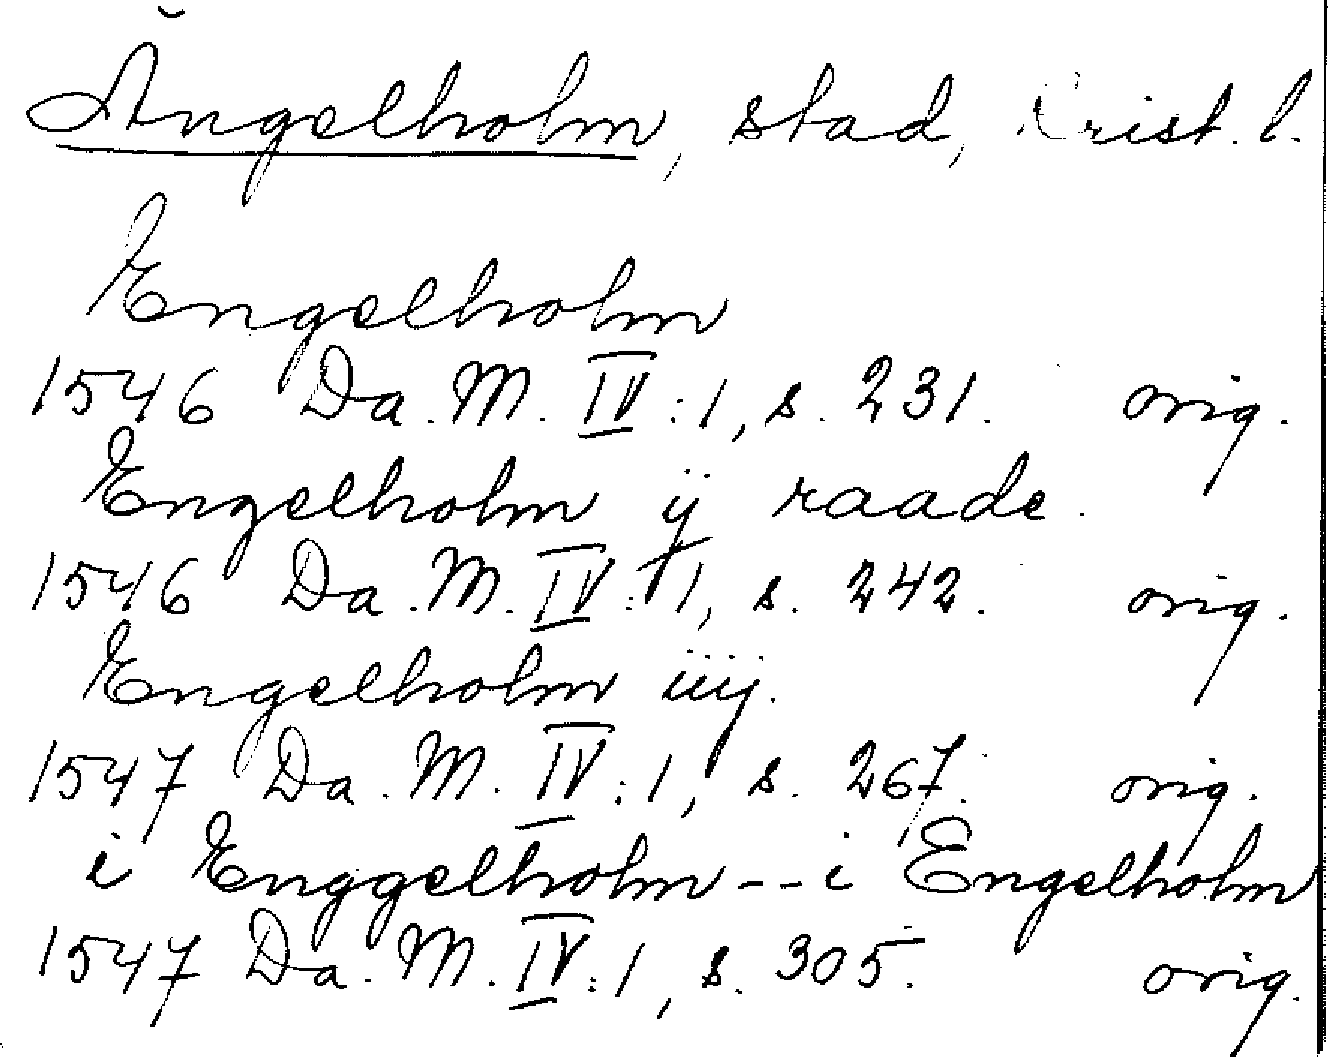 Ängelholm, stad, Krist. l.
Engelholm
1546 Da. M. IV:1, s. 231. orig.
Engelholm ij raade.
1546 Da. M. IV:1, s. 242. orig.
Engelholm iiij.
1547 Da. M. IV:1, s. 267. orig.
i Enggelholm -- i Engelholm
1547 Da. M. IV:1, s. 305. orig.